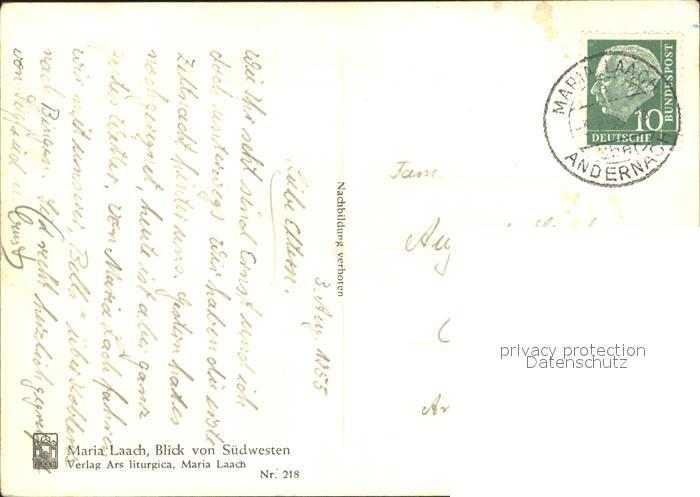 3. Aug. 1955
Liebe Eltern.
Wie Ihr seht sind Ernst und ich
doch unterwegs. Wir haben die erste
Zeltnacht hinter uns. Gestern hat es
noch geregnet, heute ist aber ganz
gutes Wetter. Von Maria Laach fahren
wir mit unserer "Bella" über Koblenz
nach Bingen. Seid recht herzlich gegrüßt
von Siegfried u. Ernst
Nachbildung verboten
Maria Laach, Blick von Südwesten
Verlag Ars liturgica, Maria Laach
Nr. 218
MARIA LAACH
ANDERNACH
10
DEUTSCHE
BUNDESPOST
Fam.
privacy protection
Datenschutz